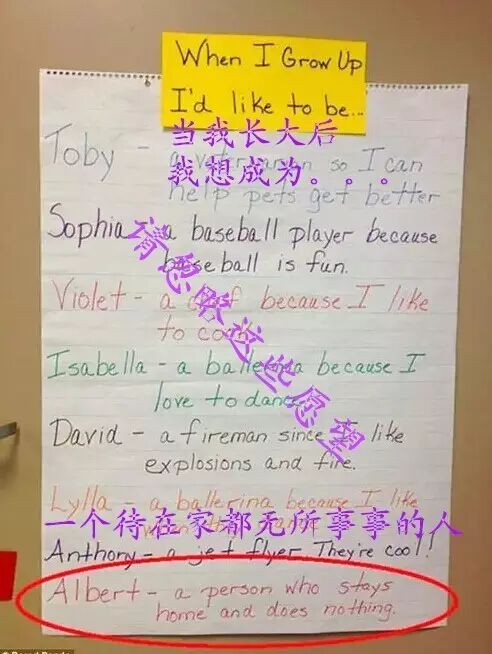 When I Grow Up
I'd like to be...
当我长大后
我想成为。。。
Toby - a veterinarian so I can
help pets get better
Sophia - a baseball player because
baseball is fun.
请忽略这些愿望
Violet - a chef because I like
to cook
Isabella - a ballerina because I
love to dance
David - a fireman since I like
explosions and fire.
Lylla - a ballerina because I like
一个待在家都无所事事的人
Anthony - a jet flyer They're cool!
Albert - a person who stays
home and does nothing.